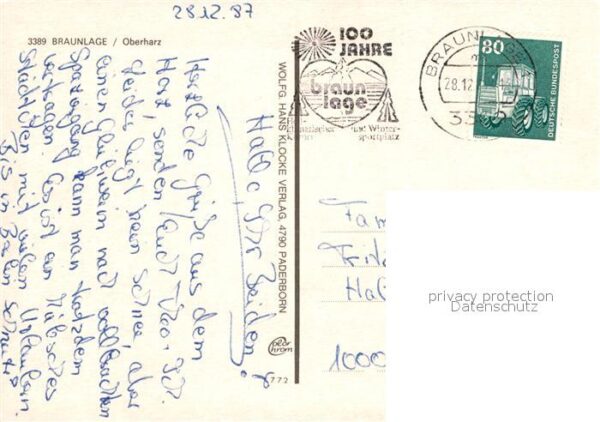 28.12.87
3389 BRAUNLAGE / Oberharz
Hallo, Ihr Beiden!
Herzliche Grüße aus dem
Harz, senden Euch
leider liegt kein Schnee, aber
einen Glühwein nach vollbrachten
Spaziergang kann man trotzdem
vertragen. Es ist ein hübsches
Städtchen mit vielen Urlaubern
Bis in Berlin
WOLFG. HANS KLOCKE VERLAG, 4790 PADERBORN
772
100
JAHRE
braun
lage
und Winter-
sportplatz
BRAUNLAGE
28.12
80
DEUTSCHE BUNDESPOST
Fam
Hal
1000
privacy protection
Datenschutz